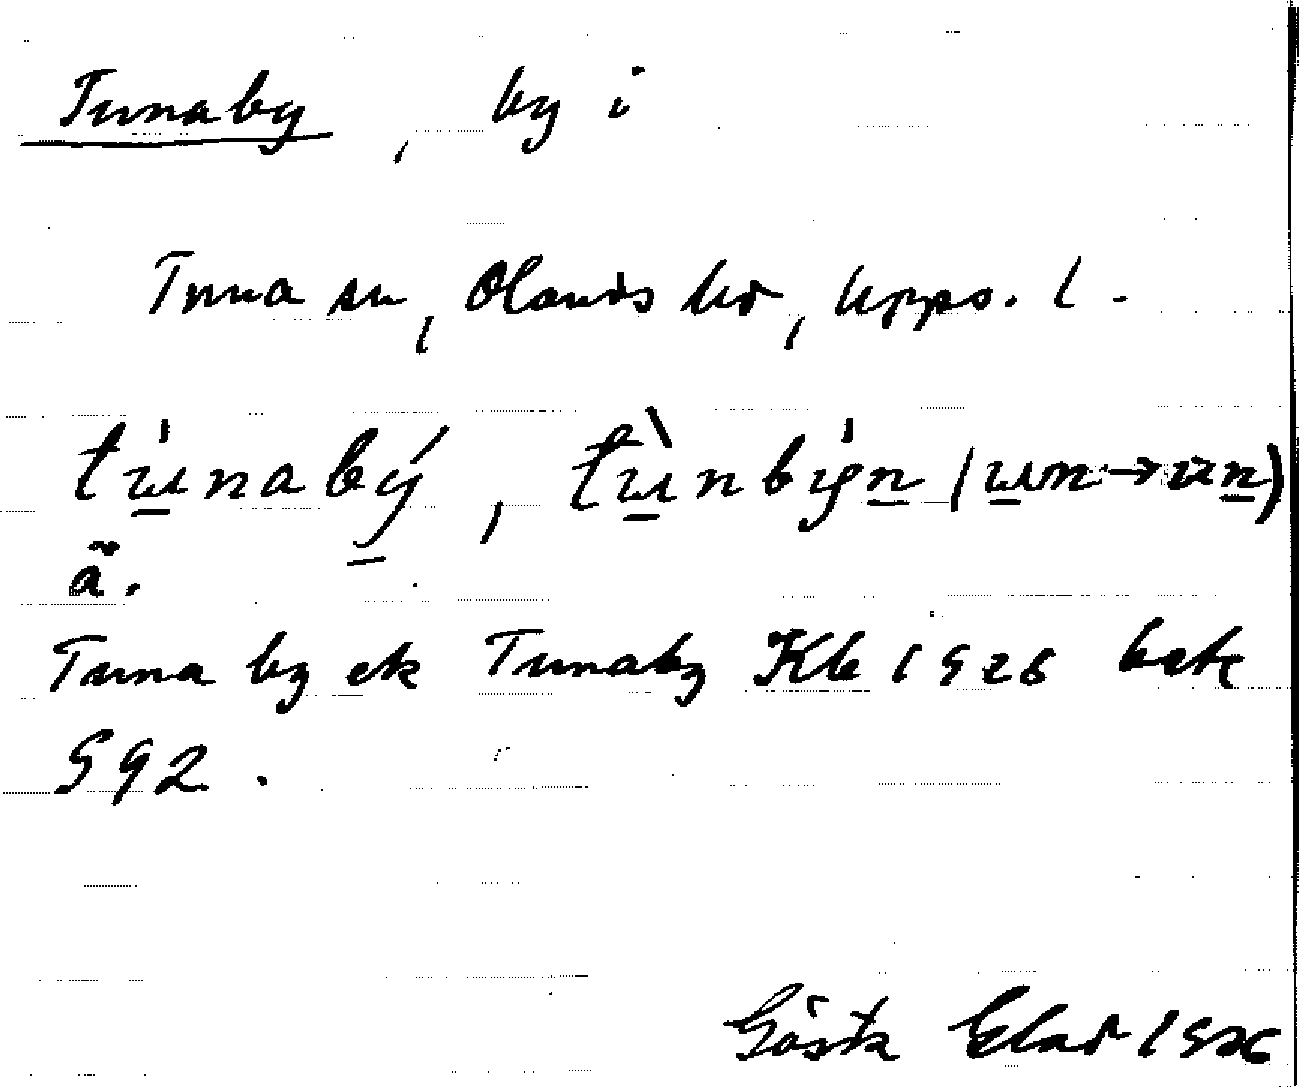 Tunaby, by i
Tuna sn, Olands hd, Upps. l.
tu̲nabý̲, tù̲nbyn̲ (u̲n→un̲)
ã.
Tuna by ek Tunaby Kb 1926 bet
592.
Gösta